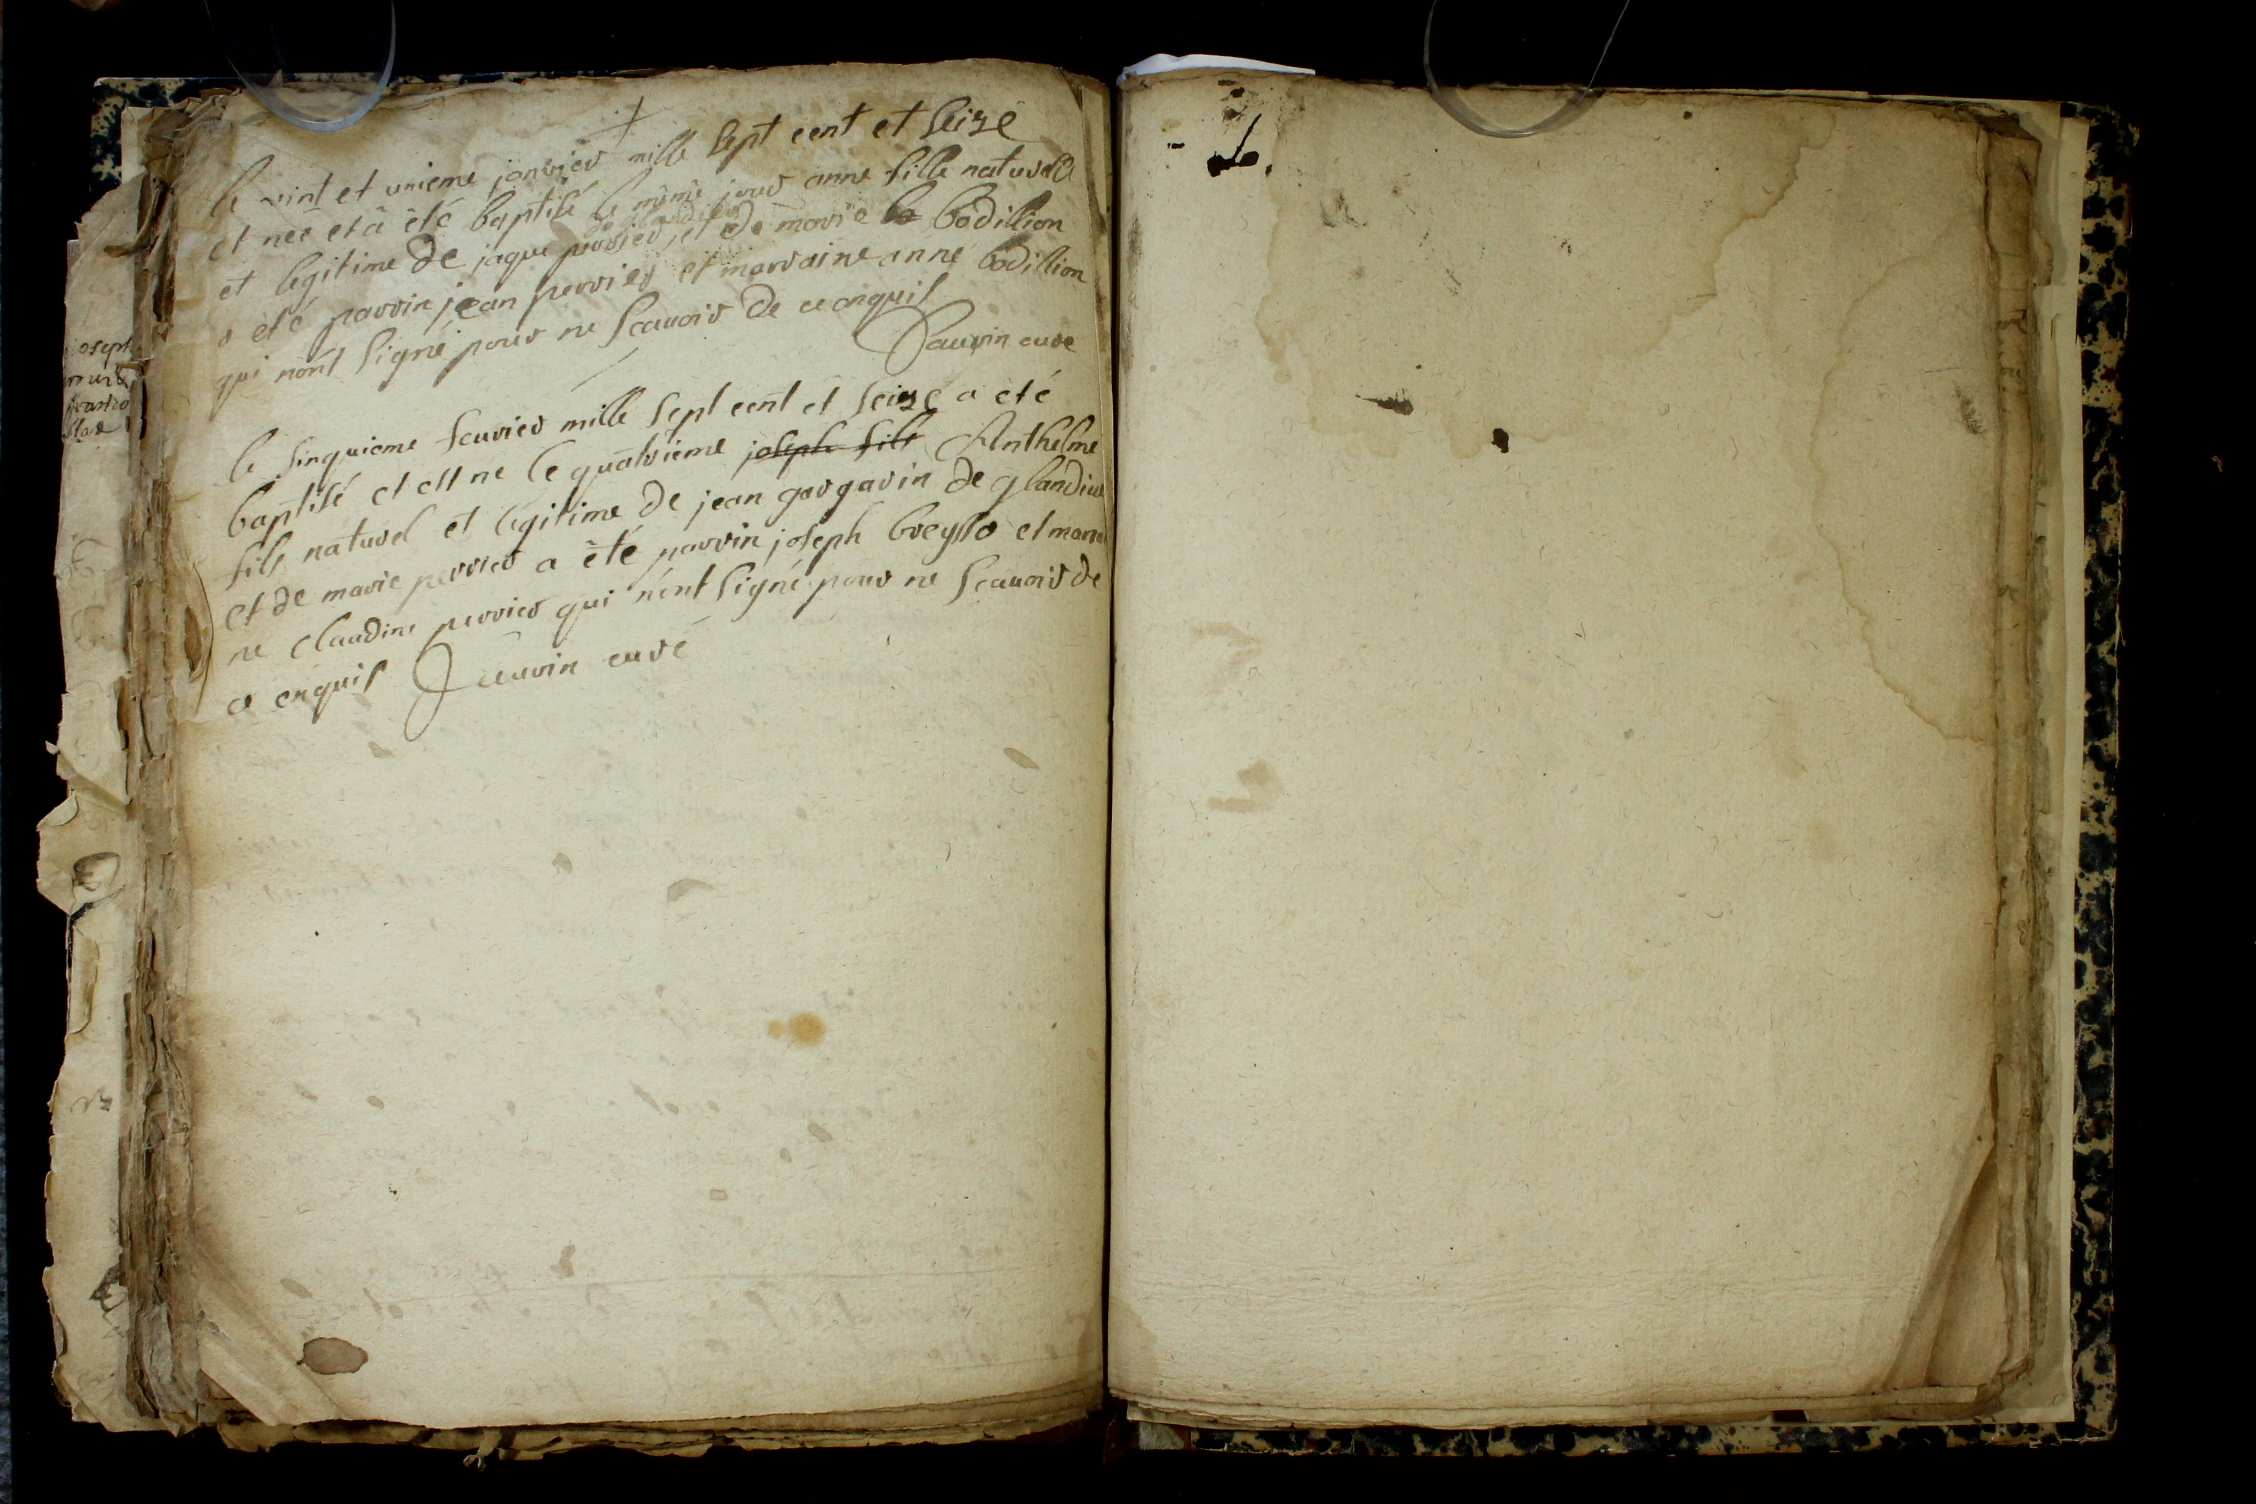 le vint et unieme janvier mille sept cent et seize
et neé et â êté baptisé le même jour anne fille naturelle
de glandieu
et legitime de jaque perrier, et de marie bodillion
a êté parrin jean perrier et marraine anne bodillion
qui nónt signé pour ne scauoir de ce enquis
Sauvin curé
le sinquieme feuvier mille sept cent et seize a êté
baptisé et est né le quatrieme joseph fils Anthelme
fils naturel et légitime de jean gargarin de glandieu
et de marie perrier a êté parrin joseph breysso et marai
ne claudine perrier qui nónt signé pour ne scauoir de
ce enquis Sauvin curé